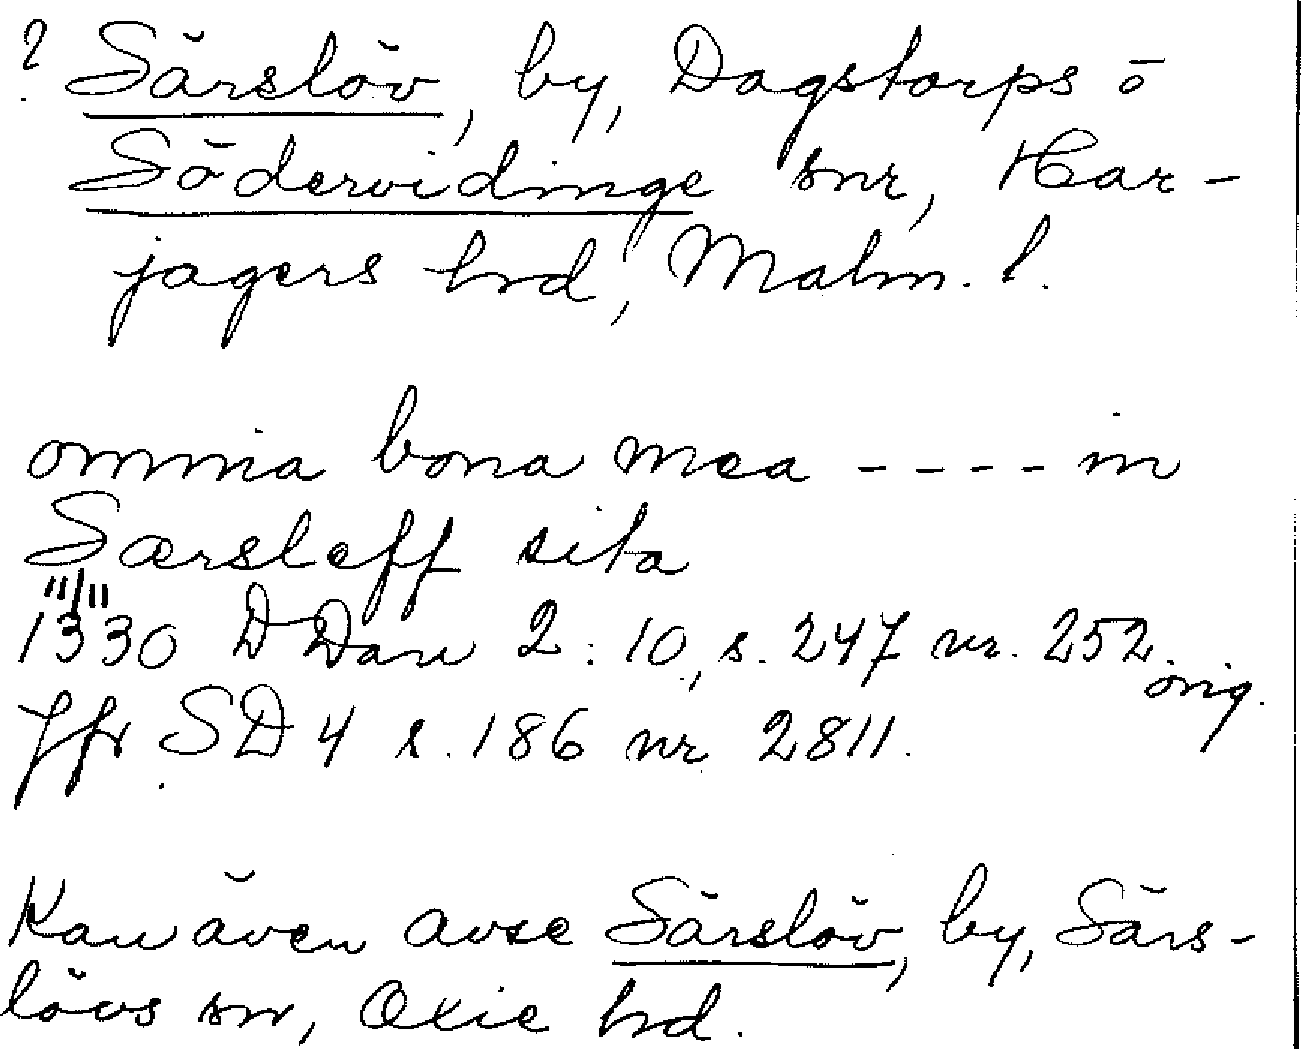 ? Särslöv, by, Dagstorps o
Södervidinge snr, Har-
jagers hrd, Malm. l.
omnia bona mea ---- in
Særsleff sita
11/11
1330 DDan 2:10, s. 247 nr. 252.
orig.
Jfr SD 4 s. 186 nr 2811.
Kan även avse Särslöv, by, Särs-
lövs sn, Oxie hrd.